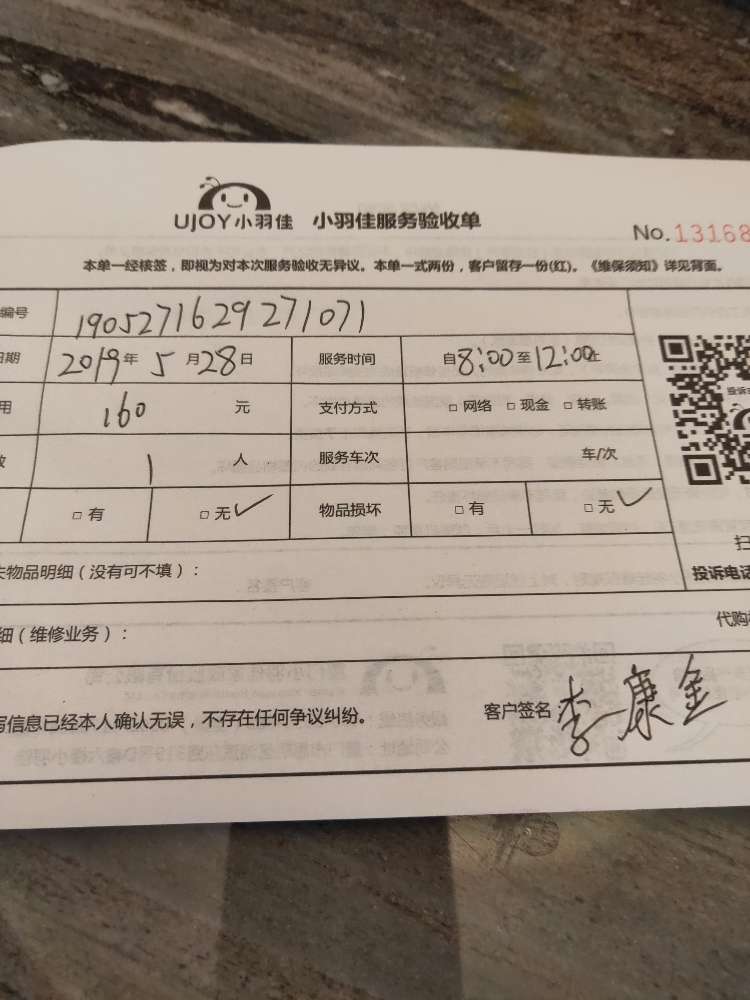 UJOY小羽佳 小羽佳服务验收单
No.13168
本单一经核签，即视为对本次服务验收无异议。本单一式两份，客户留存一份(红)。《维保须知》详见背面。
编号 1905271629271071
日期 2019年 5月28日 服务时间 自8:00至12:00止
用 160 元 支付方式 □ 网络 □ 现金 □ 转账
数 1 人 服务车次 车/次
□ 有 □ 无✓ 物品损坏 □ 有 □ 无✓
投诉电话
物品明细（没有可不填）：
细（维修业务）： 代购
写信息已经本人确认无误，不存在任何争议纠纷。 客户签名：李康金